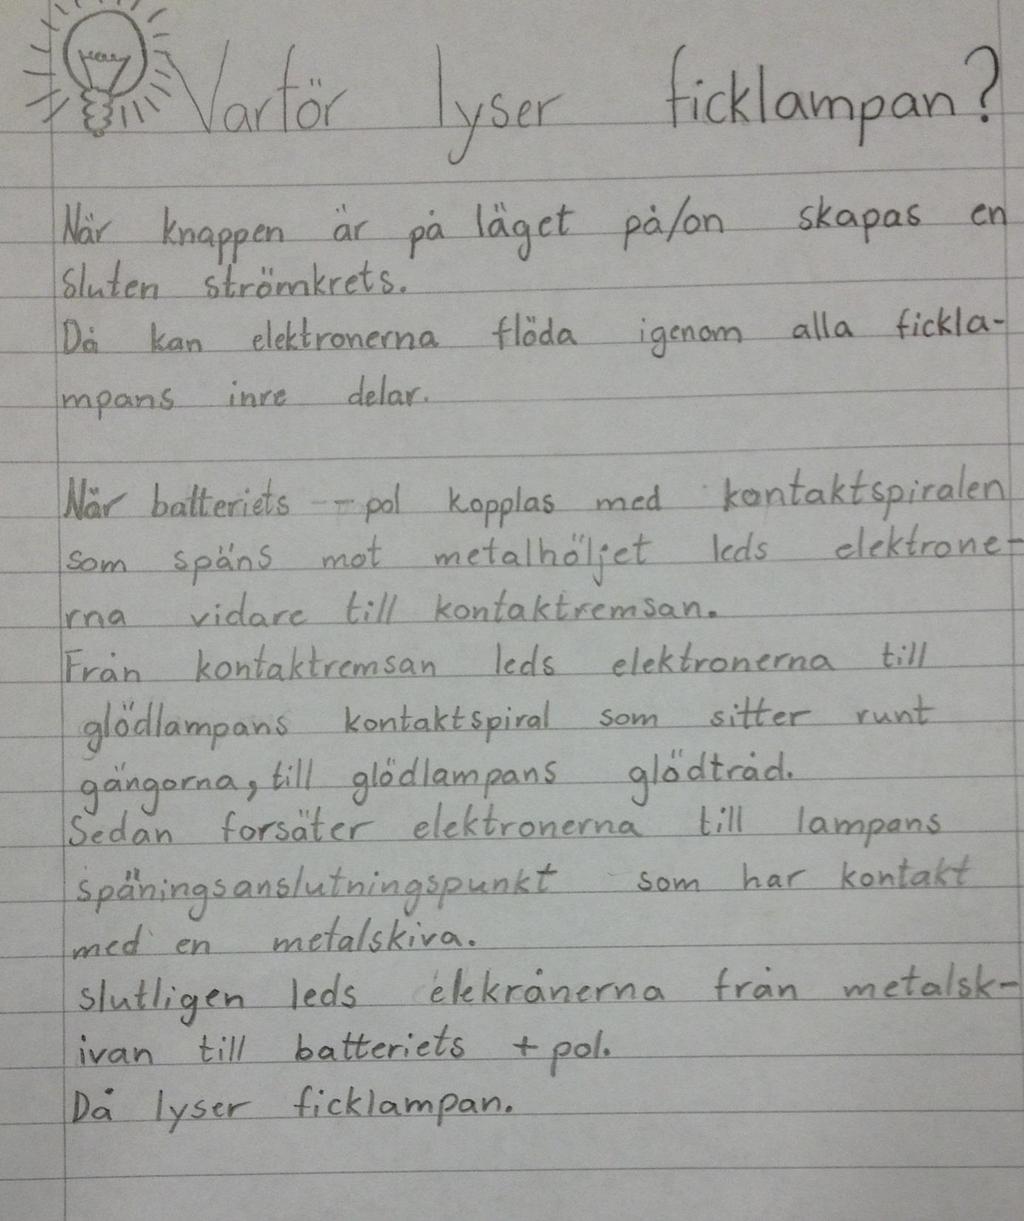 Varför lyser ficklampan?
När knappen är på läget på/on skapas en
sluten strömkrets.
Då kan elektronerna flöda igenom alla fickla-
mpans inre delar.
När batteriets - pol kopplas med kontaktspiralen
som späns mot metalhöljet leds elektrone-
rna vidare till kontaktremsan.
Från kontaktremsan leds elektronerna till
glödlampans kontaktspiral som sitter runt
gängorna, till glödlampans glödtråd.
Sedan forsäter elektronerna till lampans
späningsanslutningspunkt som har kontakt
med en metalskiva.
slutligen leds elekrånerna från metalsk-
ivan till batteriets + pol.
Då lyser ficklampan.